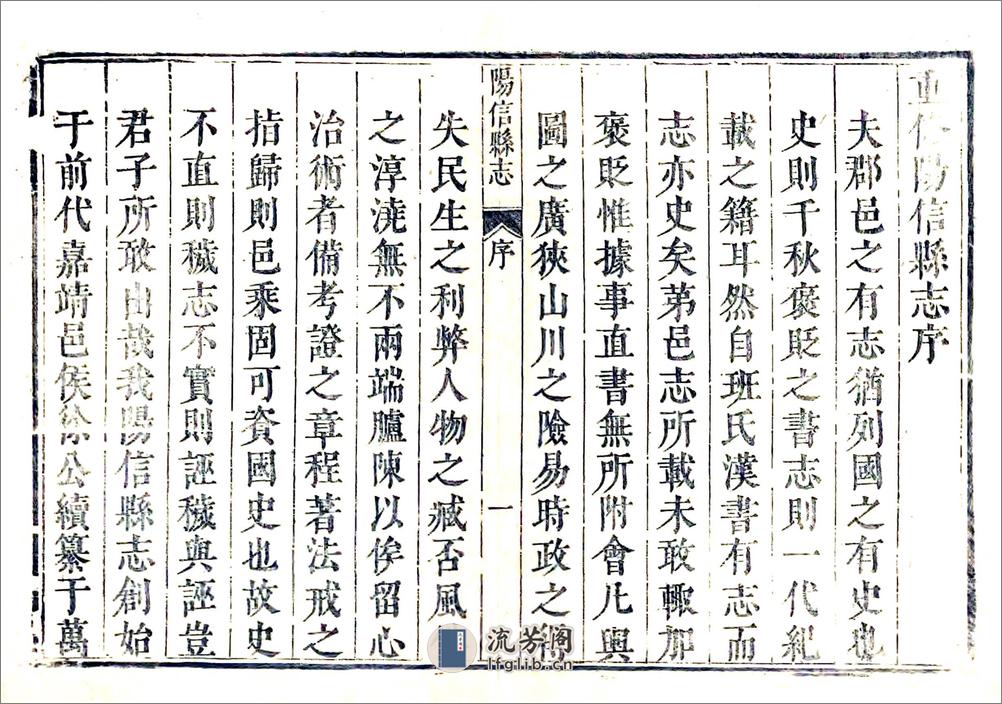 重修陽信縣志序
夫郡邑之有志猶列國之有史也
史則千秋褒貶之書志則一代紀
載之籍耳然自班氏漢書有志而
志亦史矣第邑志所載未敢輙加
褒貶惟據事直書無所附會凡輿
圖之廣狹山川之險易時政之得
陽信縣志
序
一
失民生之利弊人物之臧否風俗
之淳澆無不兩端臚陳以俟留心
治術者備考證之章程著法戒之
指歸則邑乘固可資國史也故史
不直則穢志不實則誣穢與誣豈
君子所敢出哉我陽信縣志創始
于前代嘉靖邑侯徐公續纂于萬
流芳阁
lfglib.cn